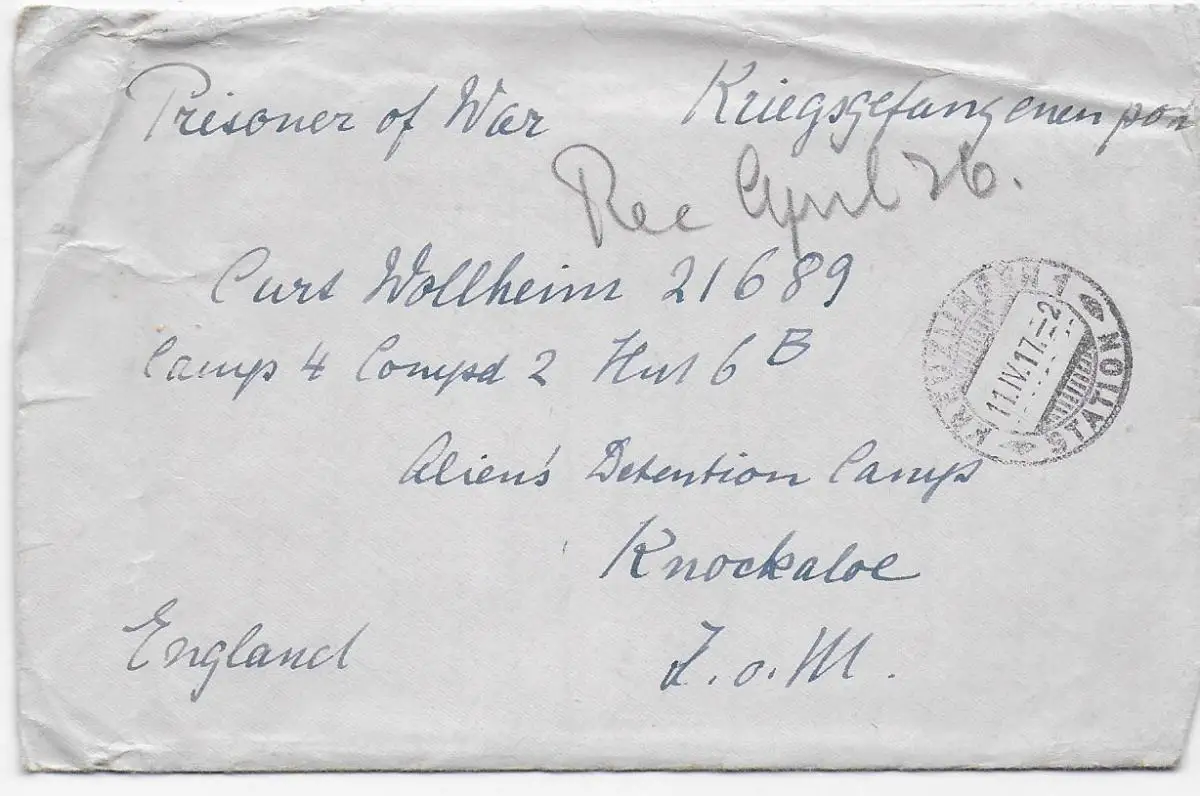 Prisoner of War Kriegsgefangenen post
Rec April 26.
Curt Wollheim 21689
Camp 4 Compd 2 Hut 6B
Alien's Detention Camp
Knockaloe
England I.o.M.
KREUZLINGEN 1
STATION
11.IV.17.-2